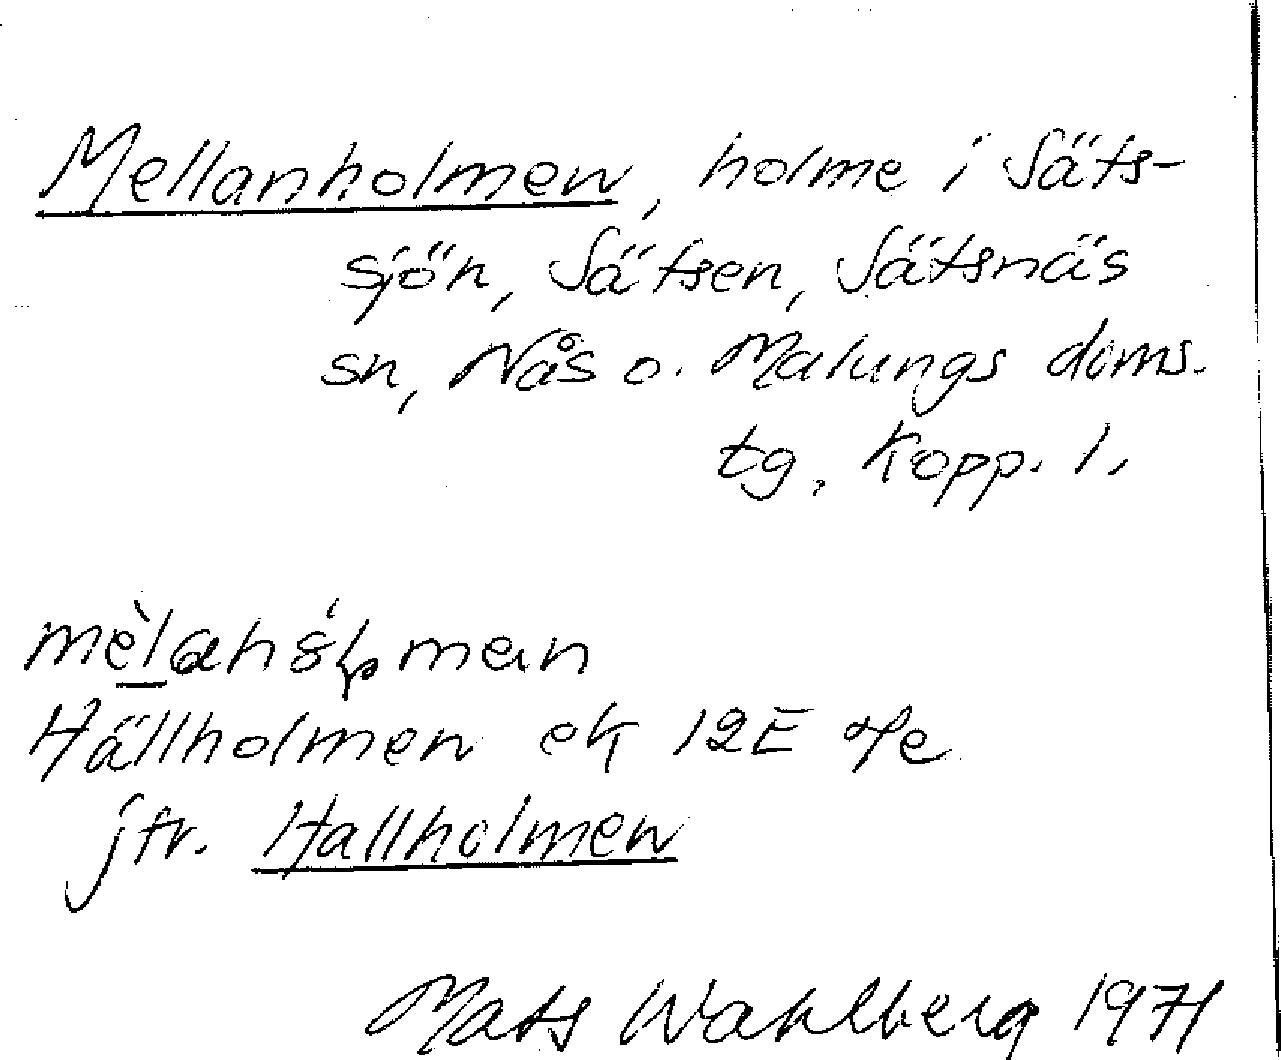 Mellanholmen, holme i Säts-
sjön, Sätsen, Sätsnäs
sn, Nås o. Malungs doms.
tg, Kopp. l.
Hällholmen ek 12E 4e
jfr. Hallholmen
Mats Wahlberg 1971